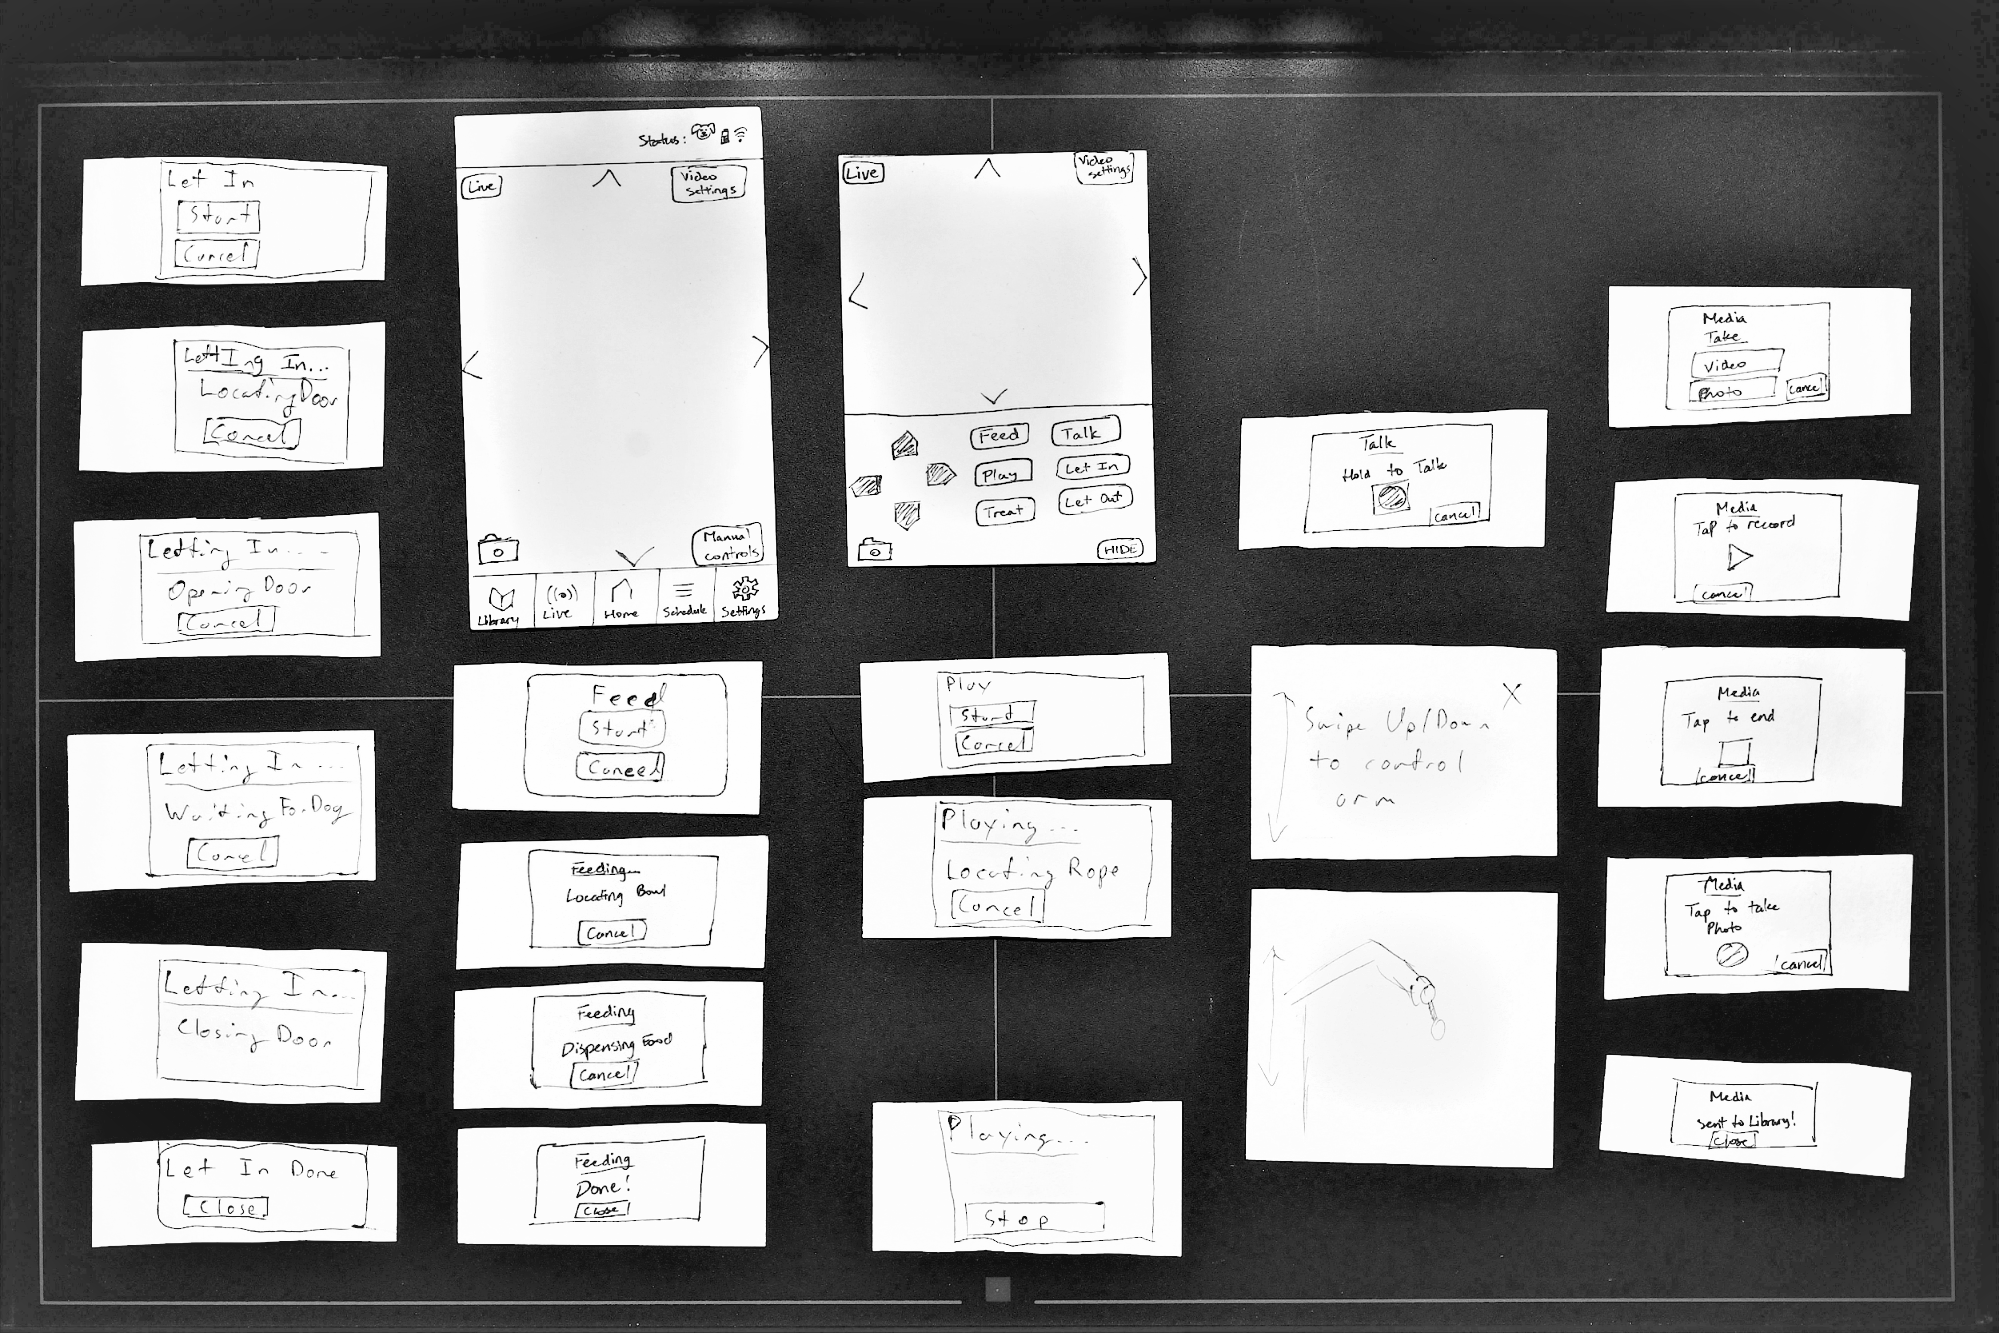 Let In
Start
Cancel
Letting In...
Locating Door
Cancel
Letting In....
Opening Door
Cancel
Letting In ...
Waiting For Dog
Cancel
Letting In...
Closing Door
Let In Done
Close
Status:
Live
Video
settings
Manual
controls
Library
Live
Home
Schedule
Settings
Feed
Start
Cancel
Feeding...
Locating Bowl
Cancel
Feeding
Dispensing Food
Cancel
Feeding
Done!
Close
Live
Video
settings
Feed
Talk
Play
Let In
Treat
Let Out
HIDE
Play
Start
Cancel
Playing ...
Locating Rope
Cancel
Playing...
Stop
Talk
Hold to Talk
Cancel
X
Swipe Up/Down
to control
arm
Media
Take
Video
Photo
Cancel
Media
Tap to record
Cancel
Media
Tap to end
Cancel
Media
Tap to take
Photo
Cancel
Media
sent to Library!
Close